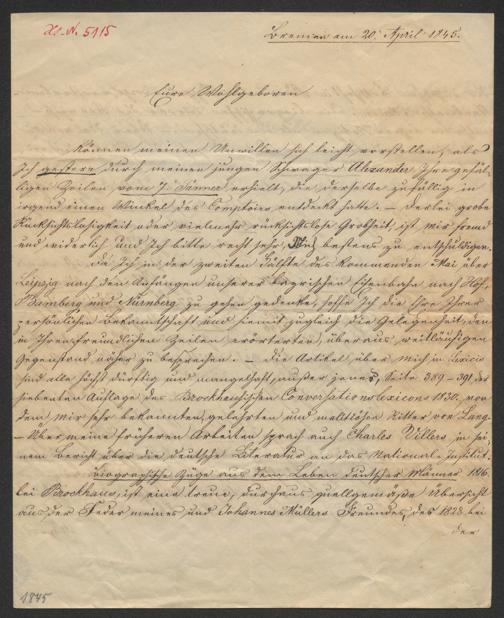 H.N. 5115
Bremen am 20. April 1845.
Eure Wohlgeboren
können meinen Unwillen sich leicht vorstellen, als
ich gestern durch meinen jungen Schwager Alexander Ihre gefäl-
ligen Zeilen vom 7. Jänner erhielt, die derselbe zufällig in
irgend einem Winkel des Comptoirs entdeckt hatte. — Derlei grobe
Rücksichtslosigkeit oder vielmehr rücksichtslose Grobheit, ist mir fremd
und widerlich und ich bitte recht sehr, Mich bestens zu entschuldigen.
Da ich in der zweiten Hälfte des kommenden Mai über
Leipzig nach den Anfängen unserer bayrischen Eisenbahn nach Hof,
Bamberg und Nürnberg zu gehen gedenke, hoffe ich die Ehre Ihrer
persönlichen Bekanntschaft und hiemit zugleich die Gelegenheit, den
in Ihren freundlichen Zeilen erörterten, überaus weitläufigen
Gegenstand näher zu besprechen. — Die Artikel über mich in
sind alle höchst dürftig und mangelhaft, außer jener, Seite 389–391 der
siebenten Auflage des Brockhausischen Conversationslexicons 1830. von
dem mir sehr bekannten, gelehrten und Ritter von Lang.
— Über meine früheren Arbeiten sprach auch Charles Villers in sei-
nem Bericht über die deutsche Literatur an das Nationale Institut.
Biographische Züge aus dem Leben deutscher Männer 1816.
bei Brockhaus, ist eine treue, durchaus quellgemäße Übersicht
aus der Feder meines und Johannes Müllers Freundes, des 1828 bei
der
1845